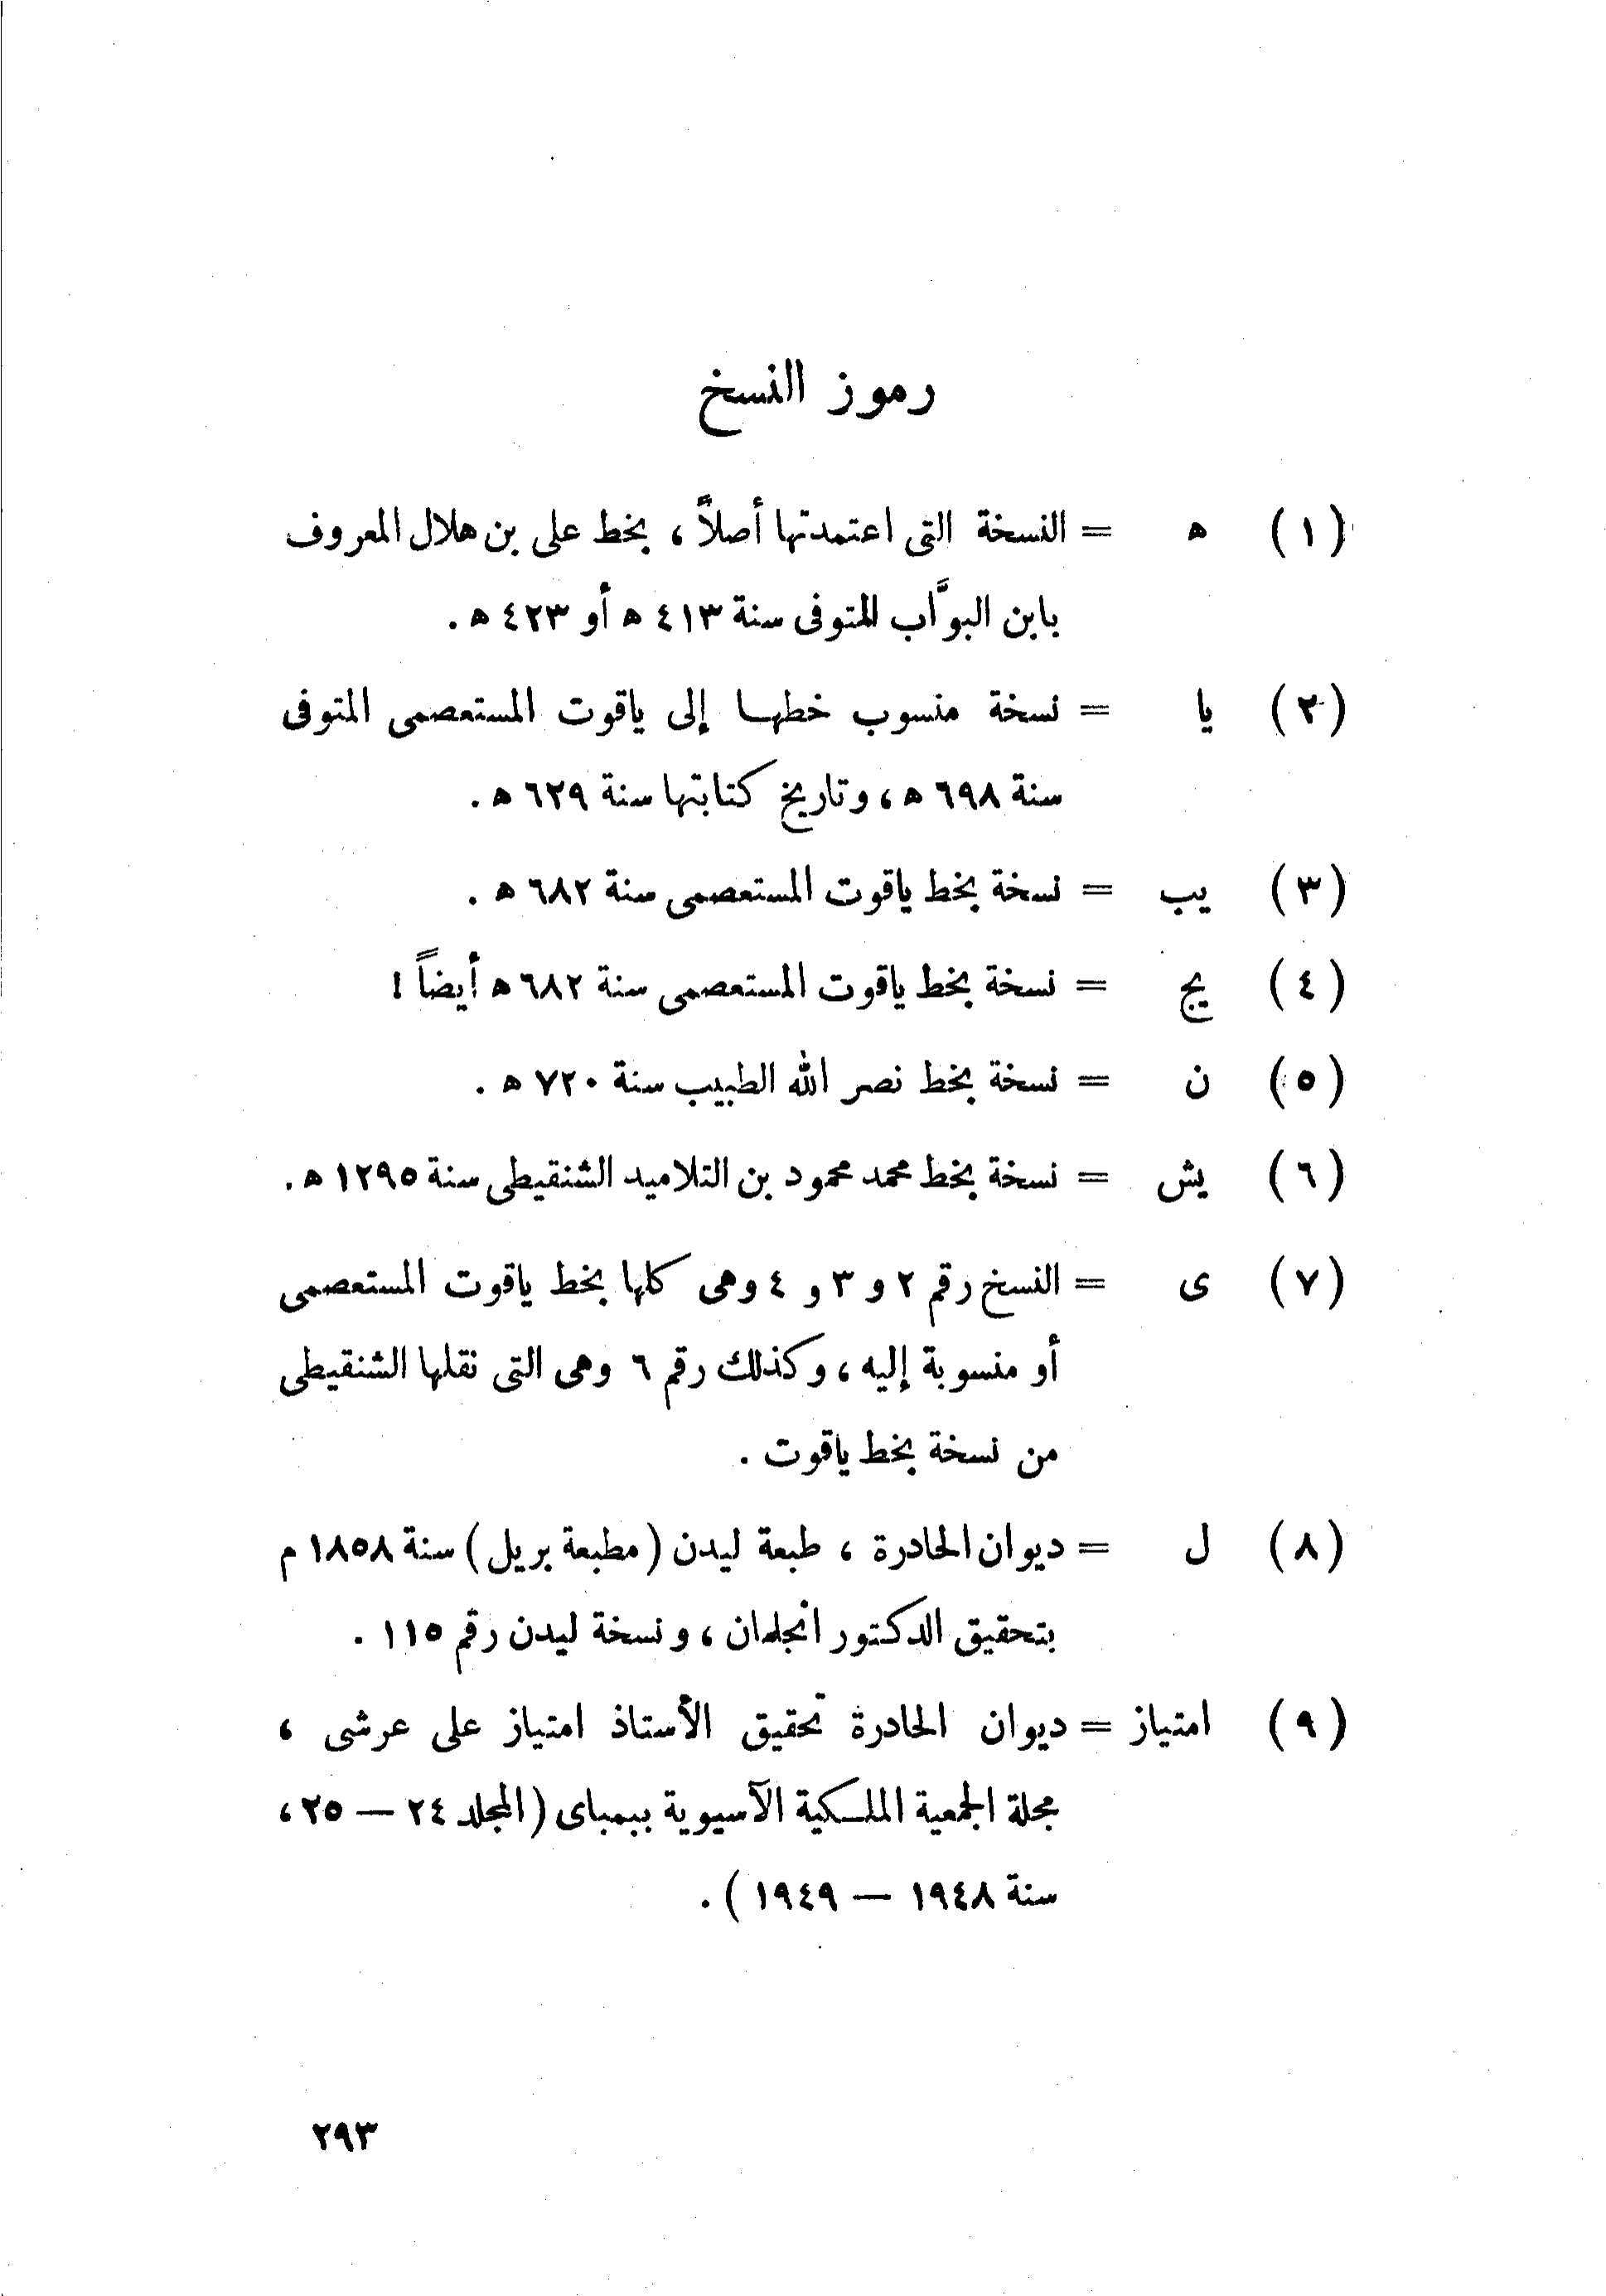 رموز النسخ
(١) ه = النسخة التى اعتمدتها أصلاً ، بخط على بن هلال المعروف
بابن البوَّاب المتوفى سنة ٤١٣ ه أو ٤٢٣ ه .
(٢) يا = نسخة منسوب خطها إلى ياقوت المستعصمى المتوفى
سنة ٦٩٨ ه ، وتاريخ كتابتها سنة ٦٢٩ ه .
(٣) يب = نسخة بخط ياقوت المستعصمى سنة ٦٨٢ ه .
(٤) يج = نسخة بخط ياقوت المستعصمى سنة ٦٨٢ ه أيضاً !
(٥) ن = نسخة بخط نصر الله الطبيب سنة ٧٢٠ ه .
(٦) يش = نسخة بخط محمد محمود بن التلاميد الشنقيطى سنة ١٢٩٥ ه .
(٧) ى = النسخ رقم ٢ و ٣ و ٤ وهى كلها بخط ياقوت المستعصمى
أو منسوبة إليه ، وكذلك رقم ٦ وهى التى نقلها الشنقيطى
من نسخة بخط ياقوت .
(٨) ل = ديوان الحادرة ، طبعة ليدن (مطبعة بريل) سنة ١٨٥٨ م
بتحقيق الدكتور انجلمان ، ونسخة ليدن رقم ١١٥ .
(٩) امتياز = ديوان الحادرة تحقيق الأستاذ امتياز على عرشى ،
مجلة الجمعية الملكية الآسيوية ببمباى (المجلد ٢٤ — ٢٥ ،
سنة ١٩٤٨ — ١٩٤٩ ) .
٢٩٣